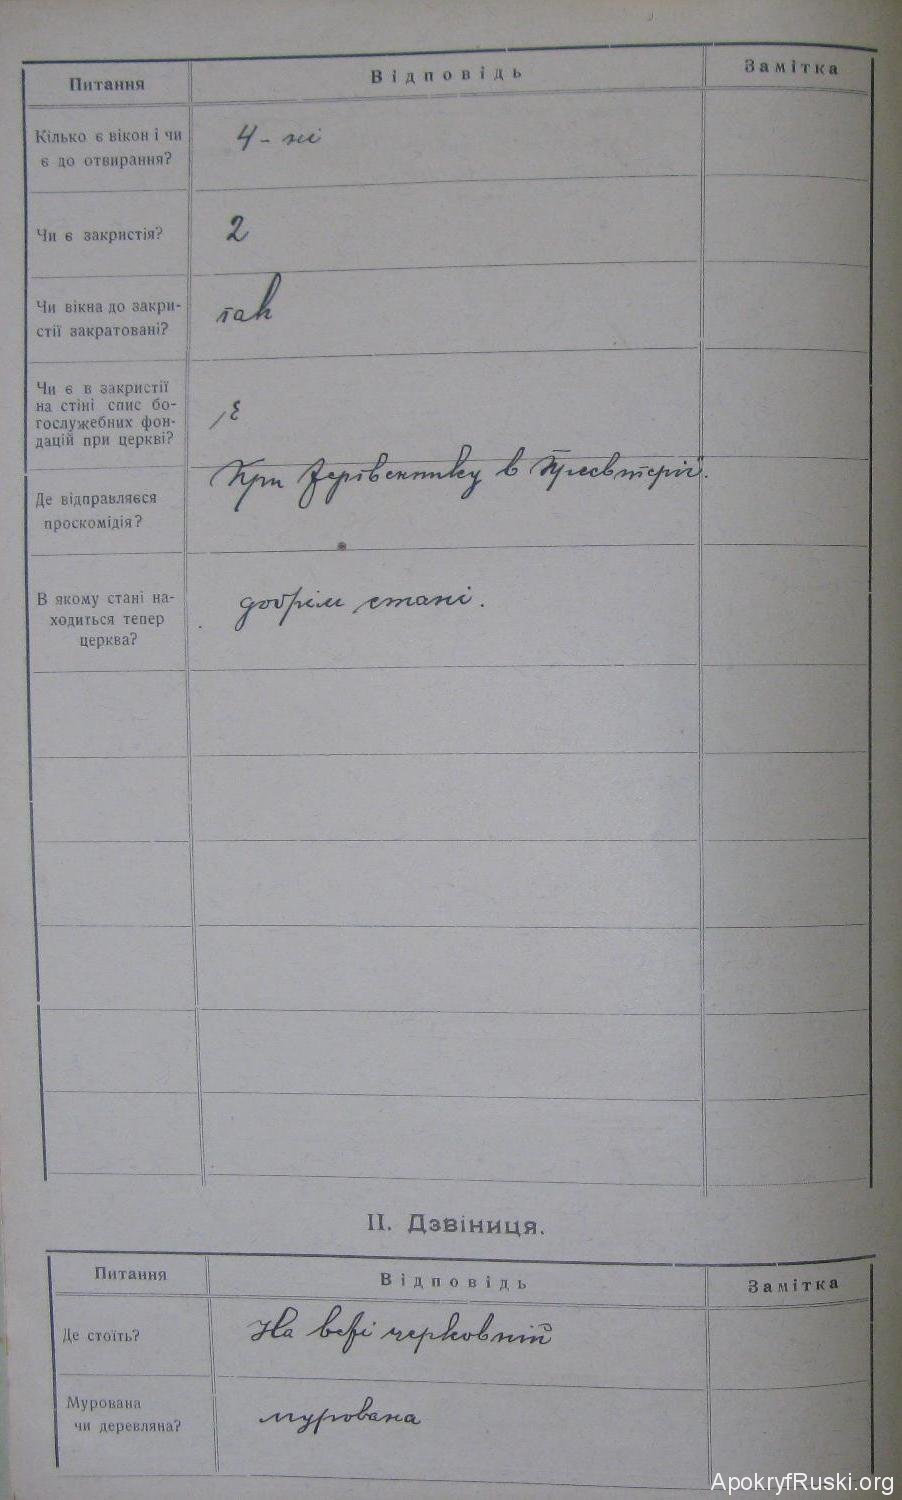 Питання Відповідь Замітка
Кілько є вікон і чи
є до отвирання?
4 - ні
Чи є закристія?
2
Чи вікна до закри-
стії закратовані?
так
Чи є в закристії
на стіні спис бо-
гослужебних фон-
дацій при церкві?
є
Де відправляєся
проскомідія?
При жертвеннику в Пресвитерії.
В якому стані на-
ходиться тепер
церква?
добрім стані.
II. Дзвіниця.
Питання Відповідь Замітка
Де стоїть?
На вежі церковній
Мурована
чи деревляна?
мурована
ApokryfRuski.org